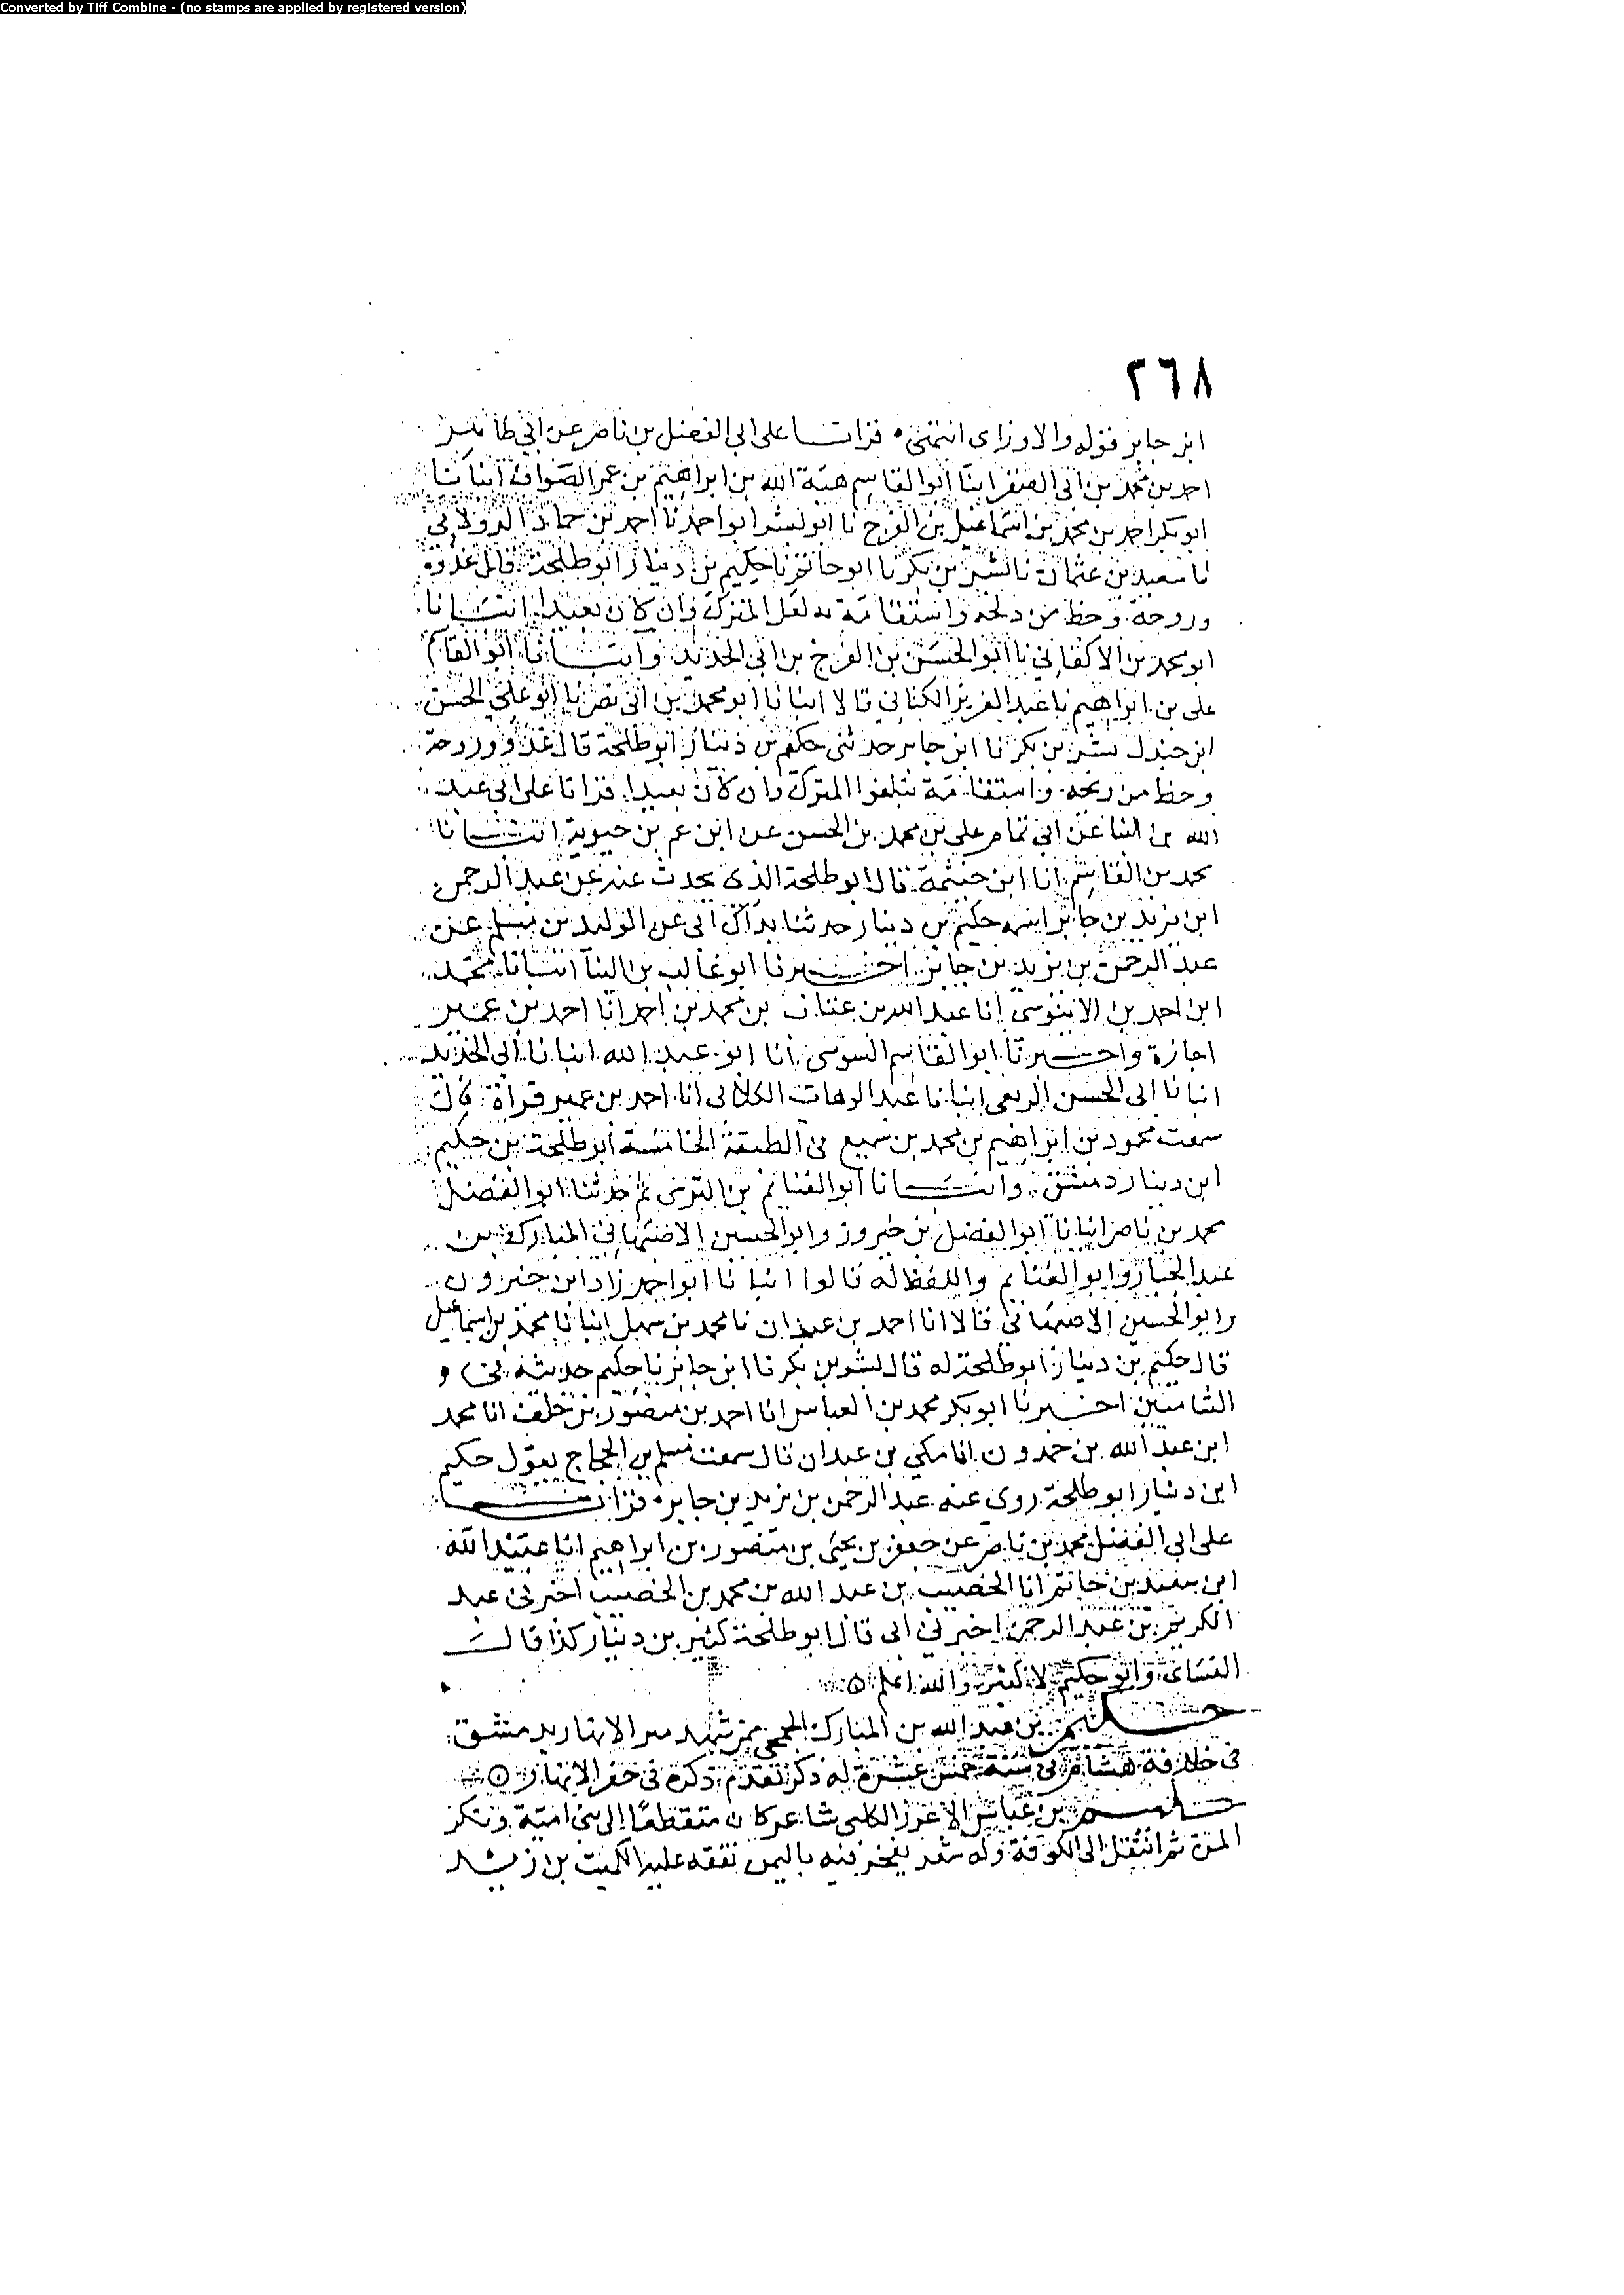 Converted by Tiff Combine - (no stamps are applied by registered version)
٢٦٨
ابن جابر قوله والاوزاى انتهى قرات على ابى الفضل بن ناصر عن ابي طاهر
احمد بن محمد بن ابى الصقر انبا ابو القاسم هبة الله بن ابراهيم بن عمر الصواف انبانا
ابو بكر احمد بن محمد بن اسماعيل بن الفرج نا ابو بشر ابو احمد نا احمد بن حماد الدولابي
نا سعيد بن عثمان نا بشر بن بكر نا ابو حاتم نا حكيم بن دينار ابو طلحة قال غدوة
وروحة وحظ من دلجة واستقامة المنزل وان كان بعيدا انبانا
ابو محمد بن الاكفاني نا ابو الحسن بن الفرج بن ابى الحديد وانبانا ابو القاسم
على بن ابراهيم نا عبد العزيز الكتاني قالا انبانا ابو محمد بن ابى نصر نا ابو علي الحسن
ابن بشر بن بكر نا ابن جابر حدثنى حكيم بن دينار ابو طلحة قال غدو وروحة
وحظ من دلجة واستقامة تبلغوا المنزل وان كان بعيدا قرانا على ابى عبد
الله بن البنا عن ابي تمام على بن محمد بن الحسن عن ابن عمر بن حيوية انبانا
محمد بن القاسم انا ابن خيثمة قال ابو طلحة الذى يحدث عنه عن عبد الرحمن
ابن يزيد بن جابر اسمه حكيم بن دينار حدثنا بذاك ابى عن الوليد بن مسلم عن
عبد الرحمن بن يزيد بن جابر اخبرنا ابو غالب بن البنا انبانا محمد
ابن احمد بن الابنوسى انا عبد الله بن عتاب بن محمد بن احمد انا احمد بن عمير
اجازة واخبرنا ابو القاسم السوسى انا ابو عبد الله انبانا ابى الحديد
انبانا ابى الحسن الربعى انبانا عبد الوهاب الكلابى انا احمد بن عمير قراة قال
سمعت محمود بن ابراهيم بن محمد بن سميع فى الطبقة الخامسة ابو طلحة بن حكيم
ابن دينار دمشق وانبانا ابو الغنائم بن النرسى ثم حدثنا ابو الفضل
محمد بن ناصر انبانا ابو الفضل بن خيرون وابو الحسين الاصبهاني المبارك بن
عبد الجبار وابو الغنائم واللفظ له قالوا انبانا ابو احمد زاد ابن خيرون
وابو الحسين الاصبهاني قالا انا احمد بن عبدان نا محمد بن سهل انبانا محمد بن اسماعيل
قال حكيم بن دينار ابو طلحة له قال بشر بن بكر نا ابن جابر نا حكيم حديثه فى و
الشاميين اخبرنا ابو بكر محمد بن العباس انا احمد بن منصور بن خلف انا محمد
ابن عبد الله بن حمدون انا مكي بن عبدان قال سمعت مسلم بن الحجاج يقول حكيم
ابن دينار ابو طلحة روى عنه عبد الرحمن بن يزيد بن جابر قرات
على ابى الفضل محمد بن ناصر عن جعفر بن يحيى بن منصور بن ابراهيم انا عبيد الله
ابن سعيد بن حاتم انا الخصيب بن عبد الله بن محمد بن الخصيب اخبرنى عبد
الكريم بن عبد الرحمن اخبرني ابى قال ابو طلحة كثير بن دينار كذا قال
النساى وابو حكيم لا كثير والله اعلم
حكيم بن عبد الله بن المبارك الجمحى ممن شهد الانهار بدمشق
فى خلافة هشام فى سنة خمس عشرة له ذكر تقدم ذكره فى حفر الانهار
حكيم بن عباس الاعور الكلبى شاعر كان منقطعا الى بنى امية وسكن
المزة ثم انتقل الى الكوفة وله شعر يفخر فيه باليمن نقضه عليه الكميت بن زيد